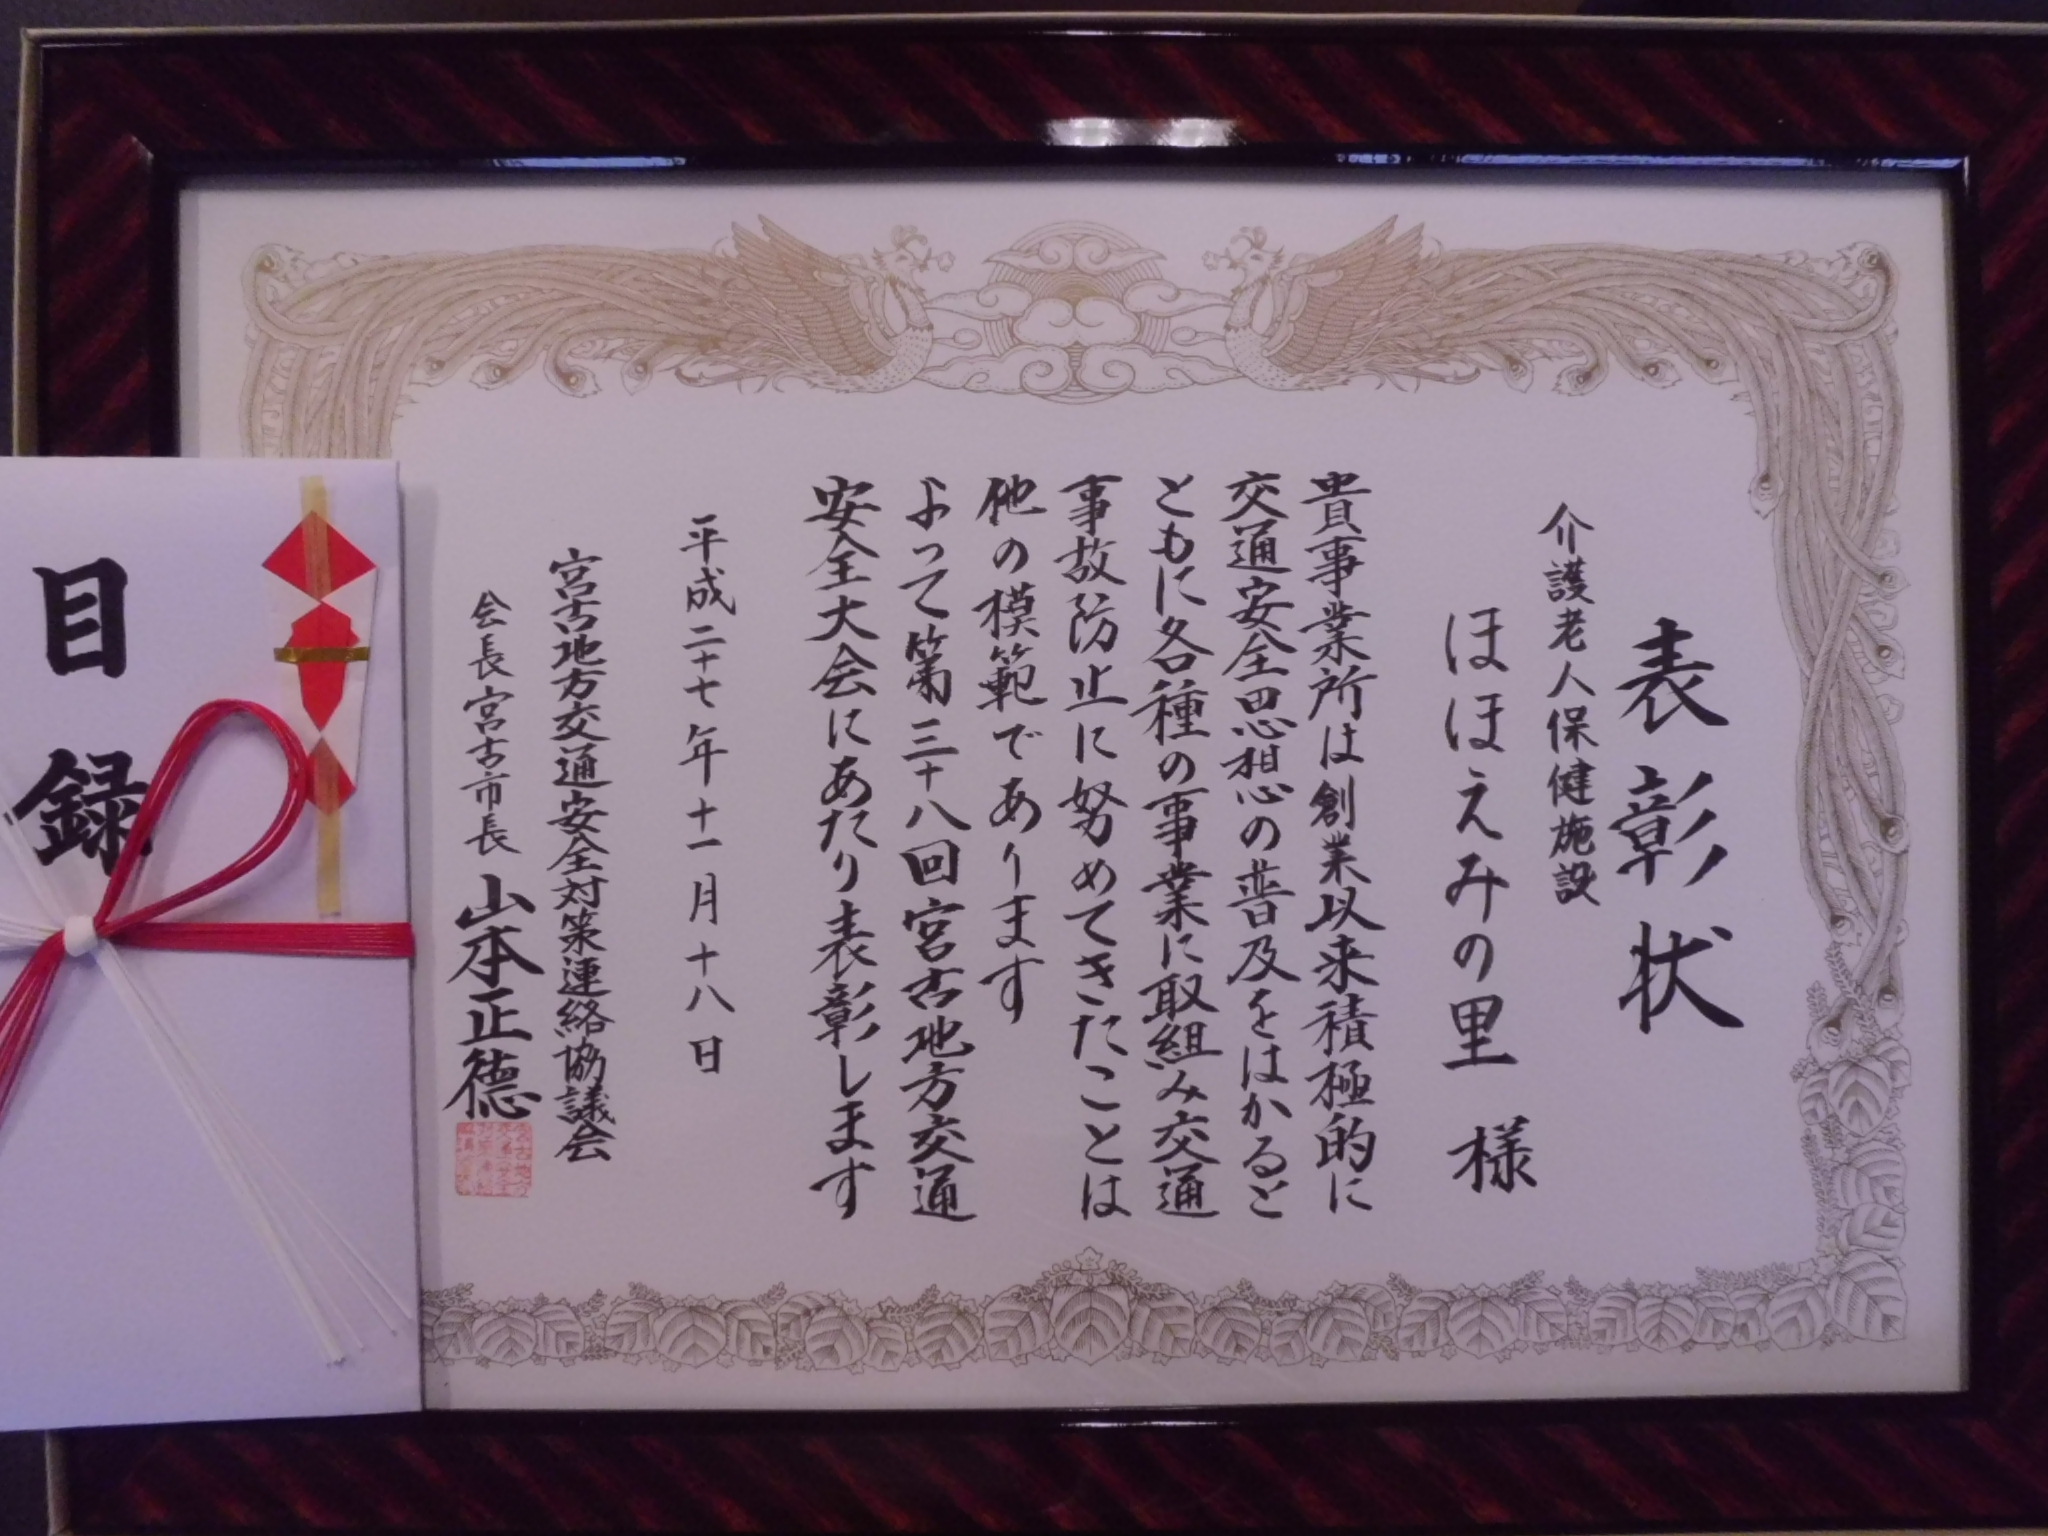 表彰状
介護老人保健施設
ほほえみの里 様
貴事業所は創業以来積極的に
交通安全思想の普及をはかると
ともに各種の事業に取組み交通
事故防止に努めてきたことは
他の模範であります
よって第三十八回宮古地方交通
安全大会にあたり表彰します
平成二十七年十一月十八日
宮古地方交通安全対策連絡協議会
会長 宮古市長 山本正徳
目録